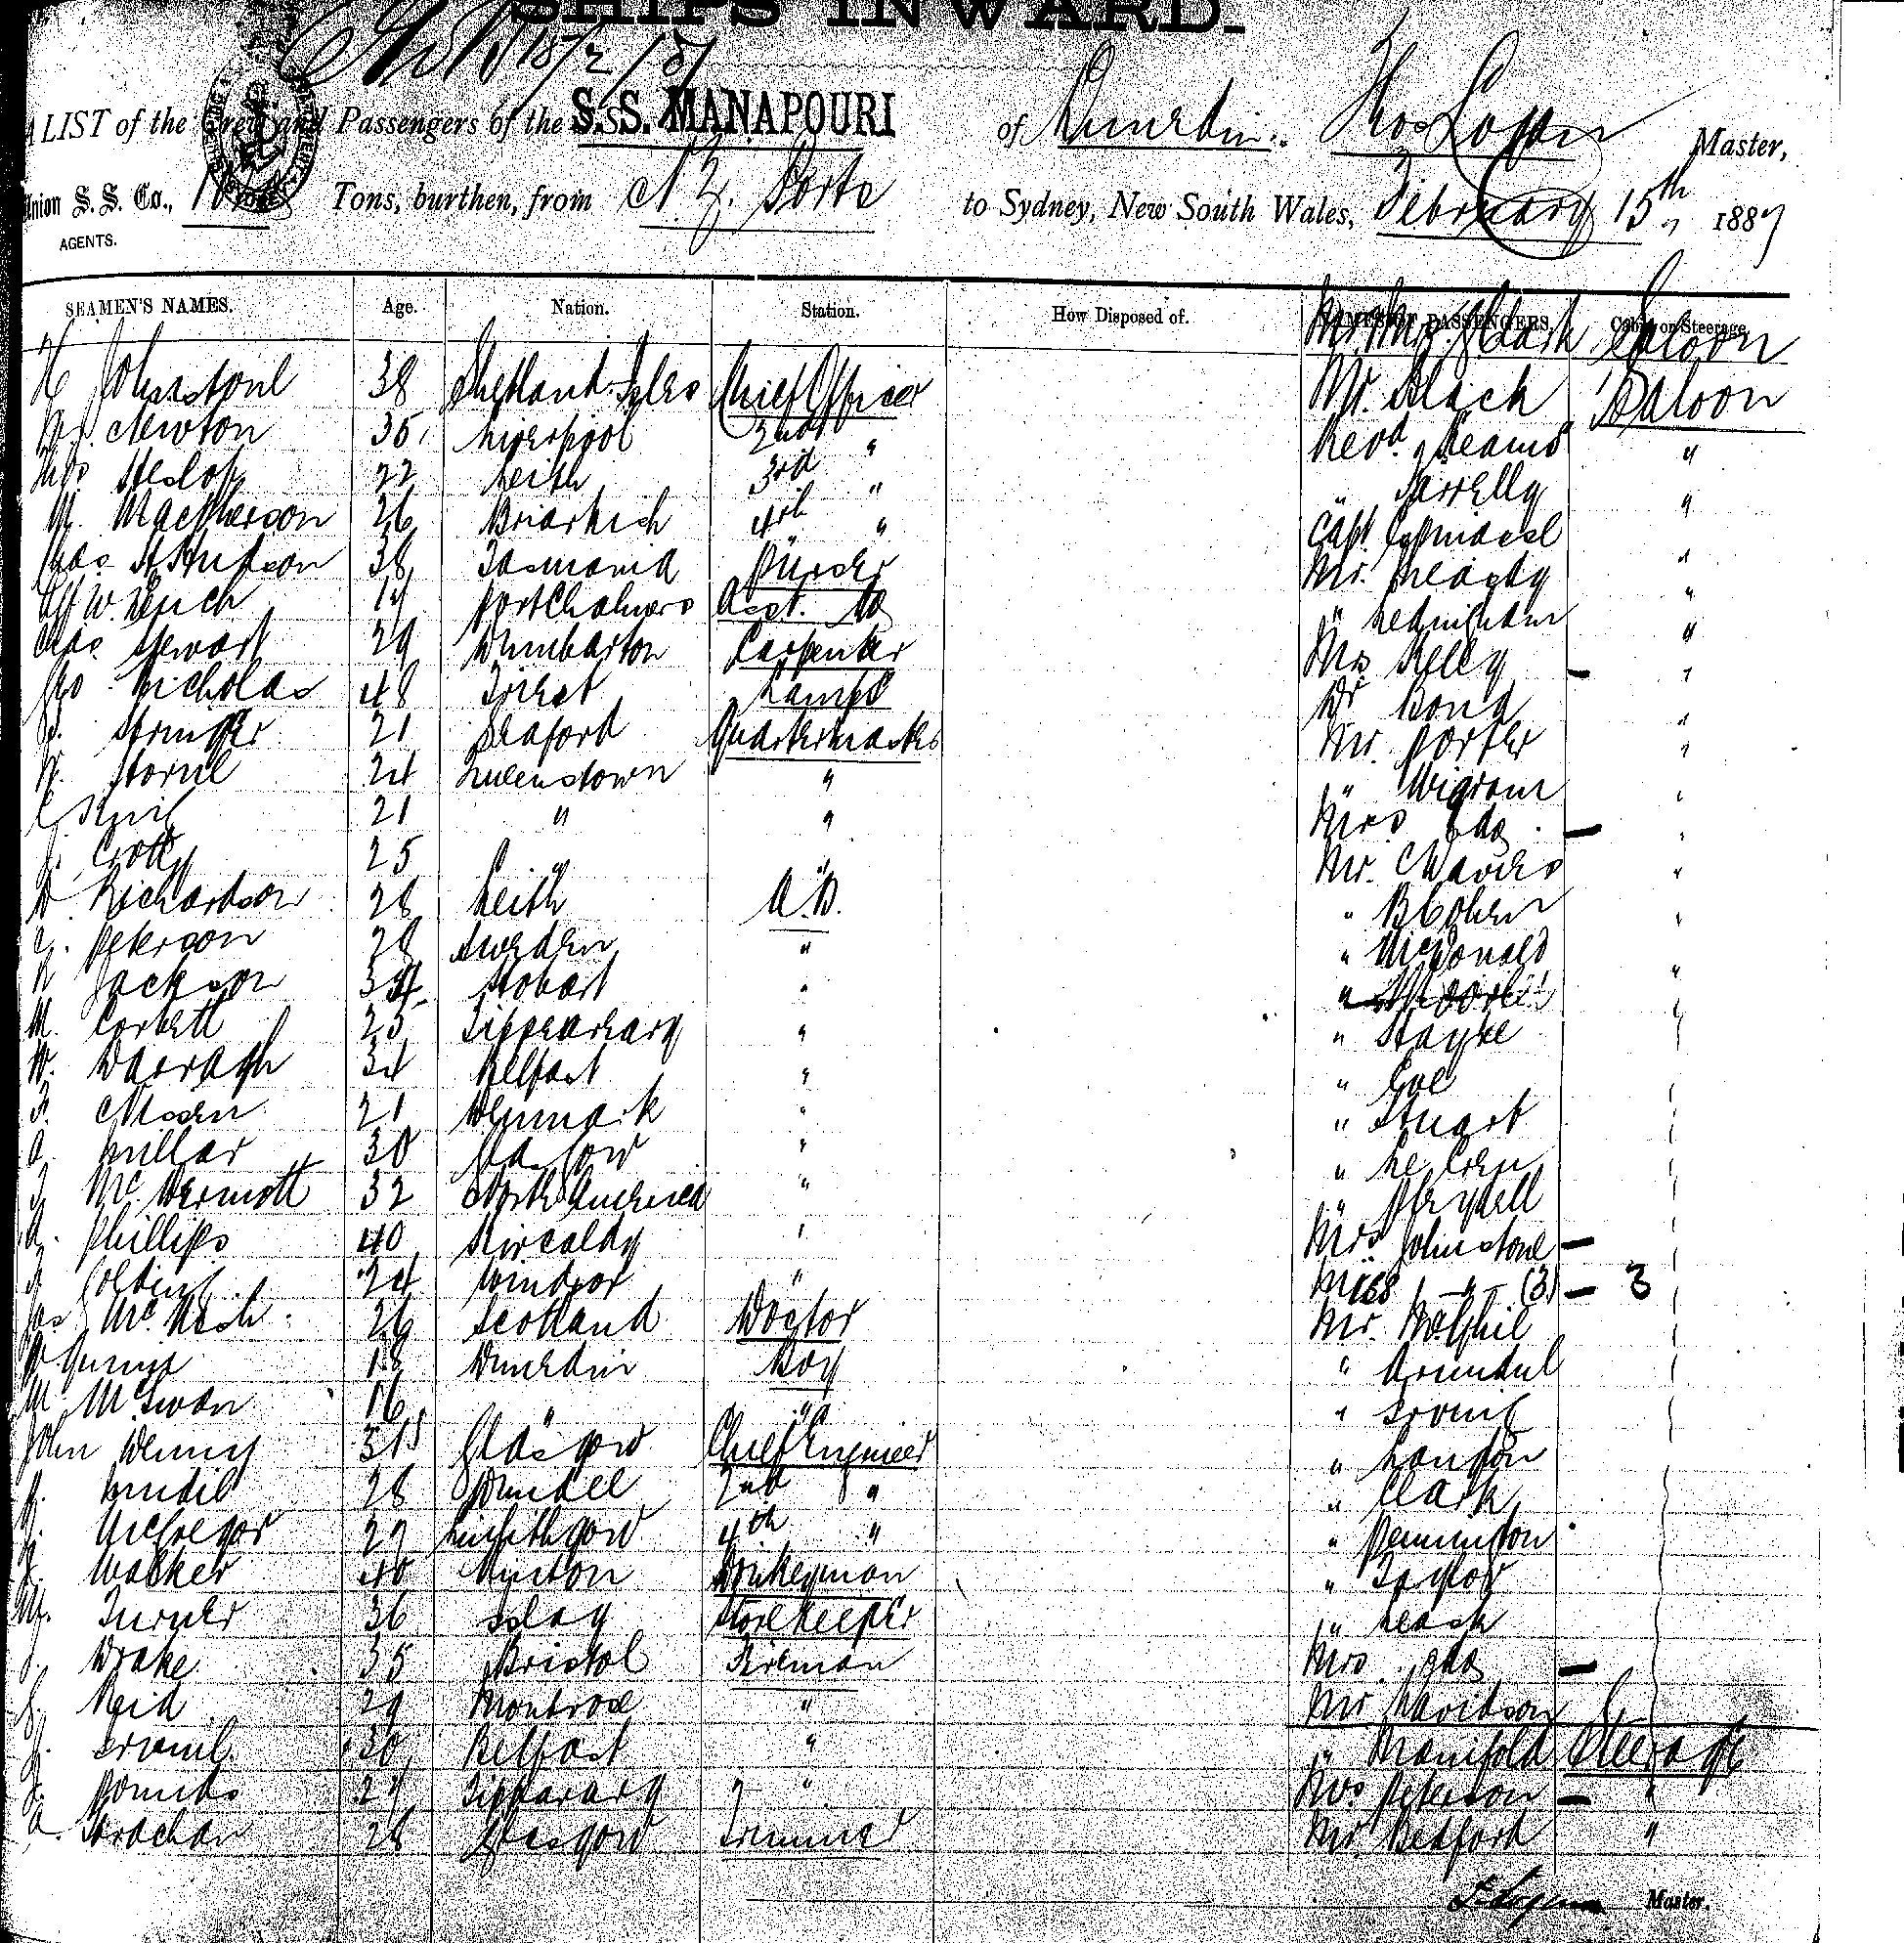 SHIPS INWARD.
A LIST of the Crew and Passengers of the S.S. MANAPOURI of Dunedin. Thos Logan Master,
Union S. S. Co., Tons, burthen, from N.Z. Ports to Sydney, New South Wales, February 15th 1887
AGENTS.
SEAMEN'S NAMES. Age. Nation. Station. How Disposed of. NAMES OF PASSENGERS. Cabin or Steerage
Mr & Mrs Clark Saloon
H Johnstone 38 Shetland Isles Chief Officer Mr. Black Saloon
W. Newton 35 Liverpool 2nd " Revd. Reams "
Thos Heslop 22 Leith 3rd " " Farrelly "
M. MacPherson 26 4th " Capt.
Chas St Hudson 38 Tasmania Purser Mr. "
Alf W. 17 Port Chalmers Asst. do " Ledingham "
Chas Stewart 29 Dumbarton Carpenter Mrs Kelly — "
Geo Nicholas 48 Triest Lamps Dr Bond "
S. Stringer 21 Seaford Quartermaster Mr. Porter "
W. Horne 24 Queenstown " " Wigram "
C King 21 " " Mrs do — "
J. Crotty 25 " " Mr. Chaviers "
D. Richardson 28 Leith A.B. " B Cohen "
Peterson 28 Sweden " " McDonald
N Jackson 34 Hobart " "
M. Corbett 25 Tipperary " " Stayte
W. Darragh 34 Belfast " " Coe
F. Nissen 21 Denmark " " Stuart
A. Millar 30 Glasgow " " Le Cren
T. McDermott 32 North America " "
A. Phillips 40 Kircaldy " Mrs Johnstone —
F. Golding 24 Windsor " Miss — " — (3) — 3
Jas McNish 26 Scotland Doctor Mr.
18 Dunedin Boy " Arundel
M McSwan 16 " " " Irving
John Denny 31 Glasgow Chief Engineer " Langdon
J. 28 Dundee 2nd " " Clark
J. McGregor 27 Linlithgow 4th " " Pennington
J. Walker 40 Donkeyman " Taylor
M. Turner 36 Islay Storekeeper " Leask
J. Drake 35 Bristol Fireman Mrs do —
J. Reid 29 Montrose " Mr Davidson
J. Irving 30 Belfast " " Manifold Steerage
J. 27 Tipperary " Mrs Peterson — "
A. Strachan 28 Glasgow Trimmer Mr Bedford "
T Logan Master.